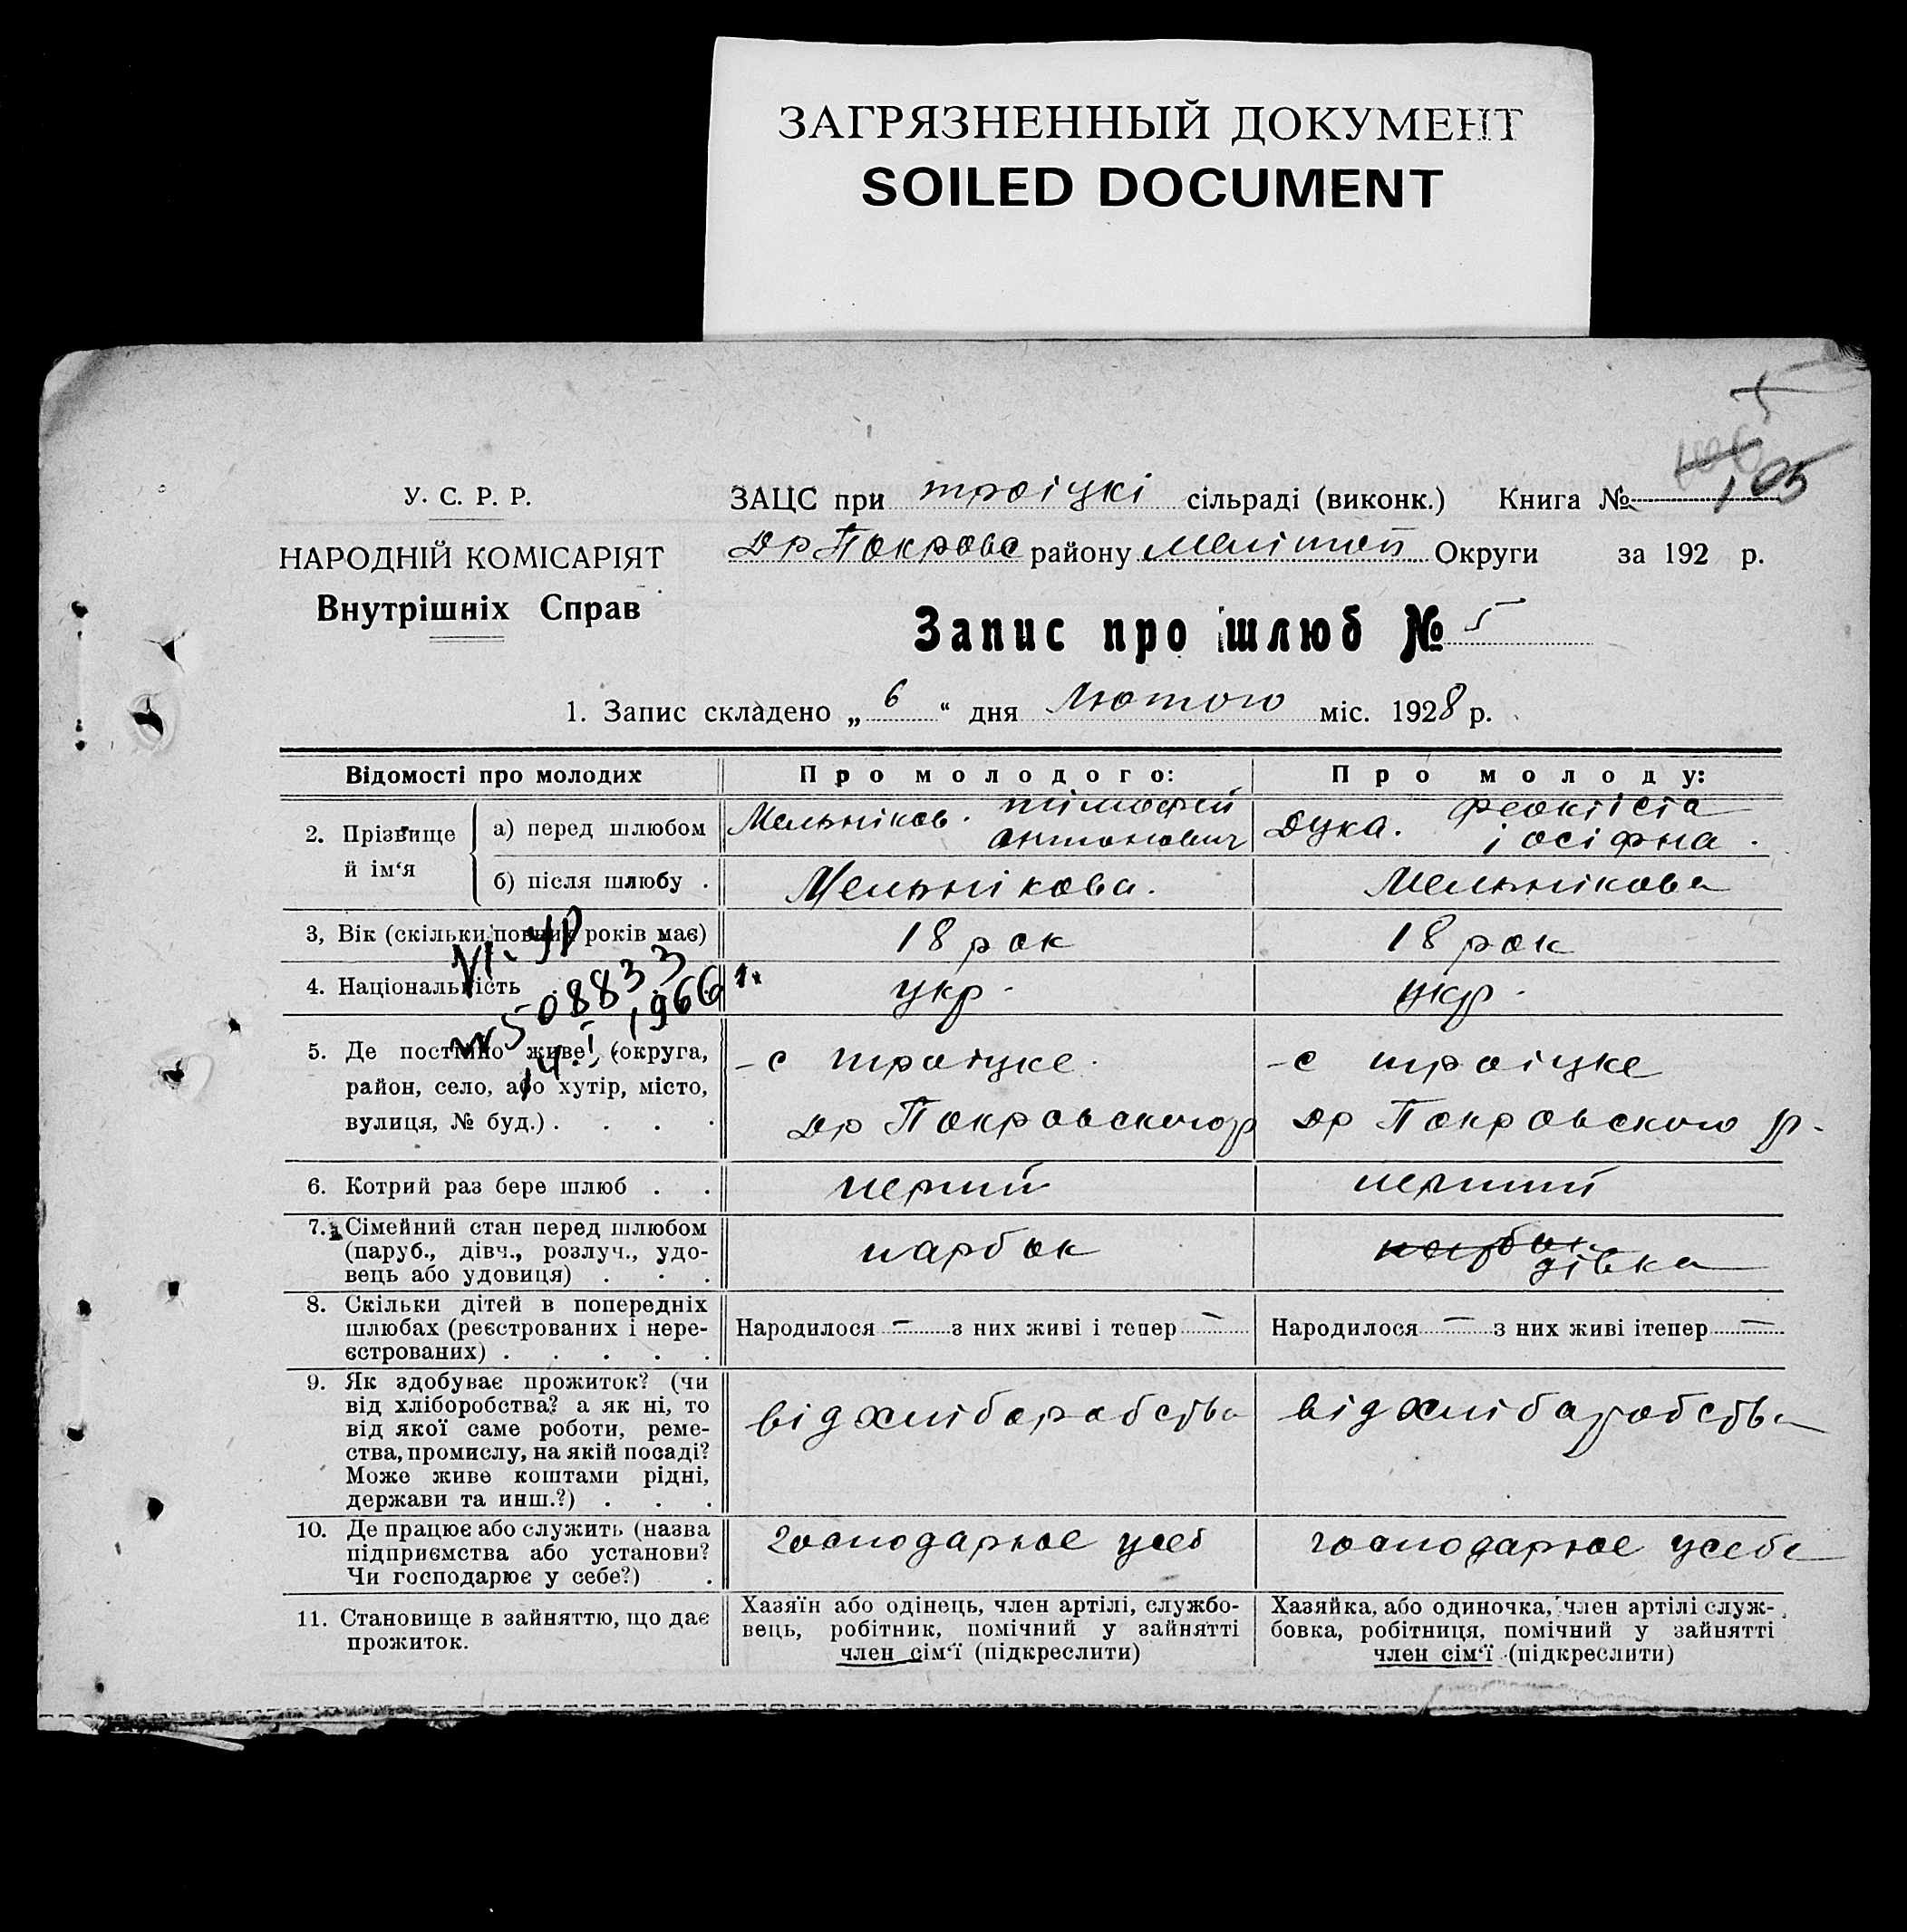 ЗАГРЯЗНЕННЫЙ ДОКУМЕНТ
SOILED DOCUMENT
5
105
У. С. Р. Р.
НАРОДНІЙ КОМІСАРІЯТ
Внутрішніх Справ
ЗАЦС при троіцкі сільраді (виконк.) Книга №
Др Покровс району Мелітоп Округи за 192 р.
Запис про шлюб № 5
1. Запис складено „ 6 “ дня Лютого міс. 1928 р.
Відомості про молодих
Про молодого:
Про молоду:
2. Прізвище й ім‘я
а) перед шлюбом
Мельніков. тімофей
антонович
Дука. феоктіста
іосіфна.
б) після шлюбу .
Мельнікова.
Мельнікова
3, Вік (скільки повних років має)
18 рок
18 рок
4. Національність
укр.
укр.
№ 508833
14.I.1966 г.
5. Де постійно живе (округа,
район, село, або хутір, місто,
вулиця, № буд.) . . . .
- с троіцке.
Др Покровского р
- с троіцке
Др Покровского р.
6. Котрий раз бере шлюб . .
перший
перший
7. Сімейний стан перед шлюбом
(паруб., дівч., розлуч., удо-
вець або удовиця) . . .
парбок
парбок
дівка
8. Скільки дітей в попередніх
шлюбах (реєстрованих і нере-
єстрованих) . . . . .
Народилося — з них живі і тепер —
Народилося — з них живі ітепер —
9. Як здобуває прожиток? (чи
від хліборобства? а як ні, то
від якої саме роботи, реме-
ства, промислу, на якій посаді?
Може живе коштами рідні,
держави та инш.?) . . .
від хліборобства
від хліборобства
10. Де працює або служить (назва
підприємства або установи?
Чи господарює у себе?) .
господарює усеб
господарює усебе
11. Становище в зайняттю, що дає
прожиток.
Хазяїн або одінець, член артілі, службо-
вець, робітник, помічний у зайнятті
член сім‘ї (підкреслити)
Хазяйка, або одиночка, член артілі служ-
бовка, робітниця, помічний у зайнятті
член сім‘ї (підкреслити)